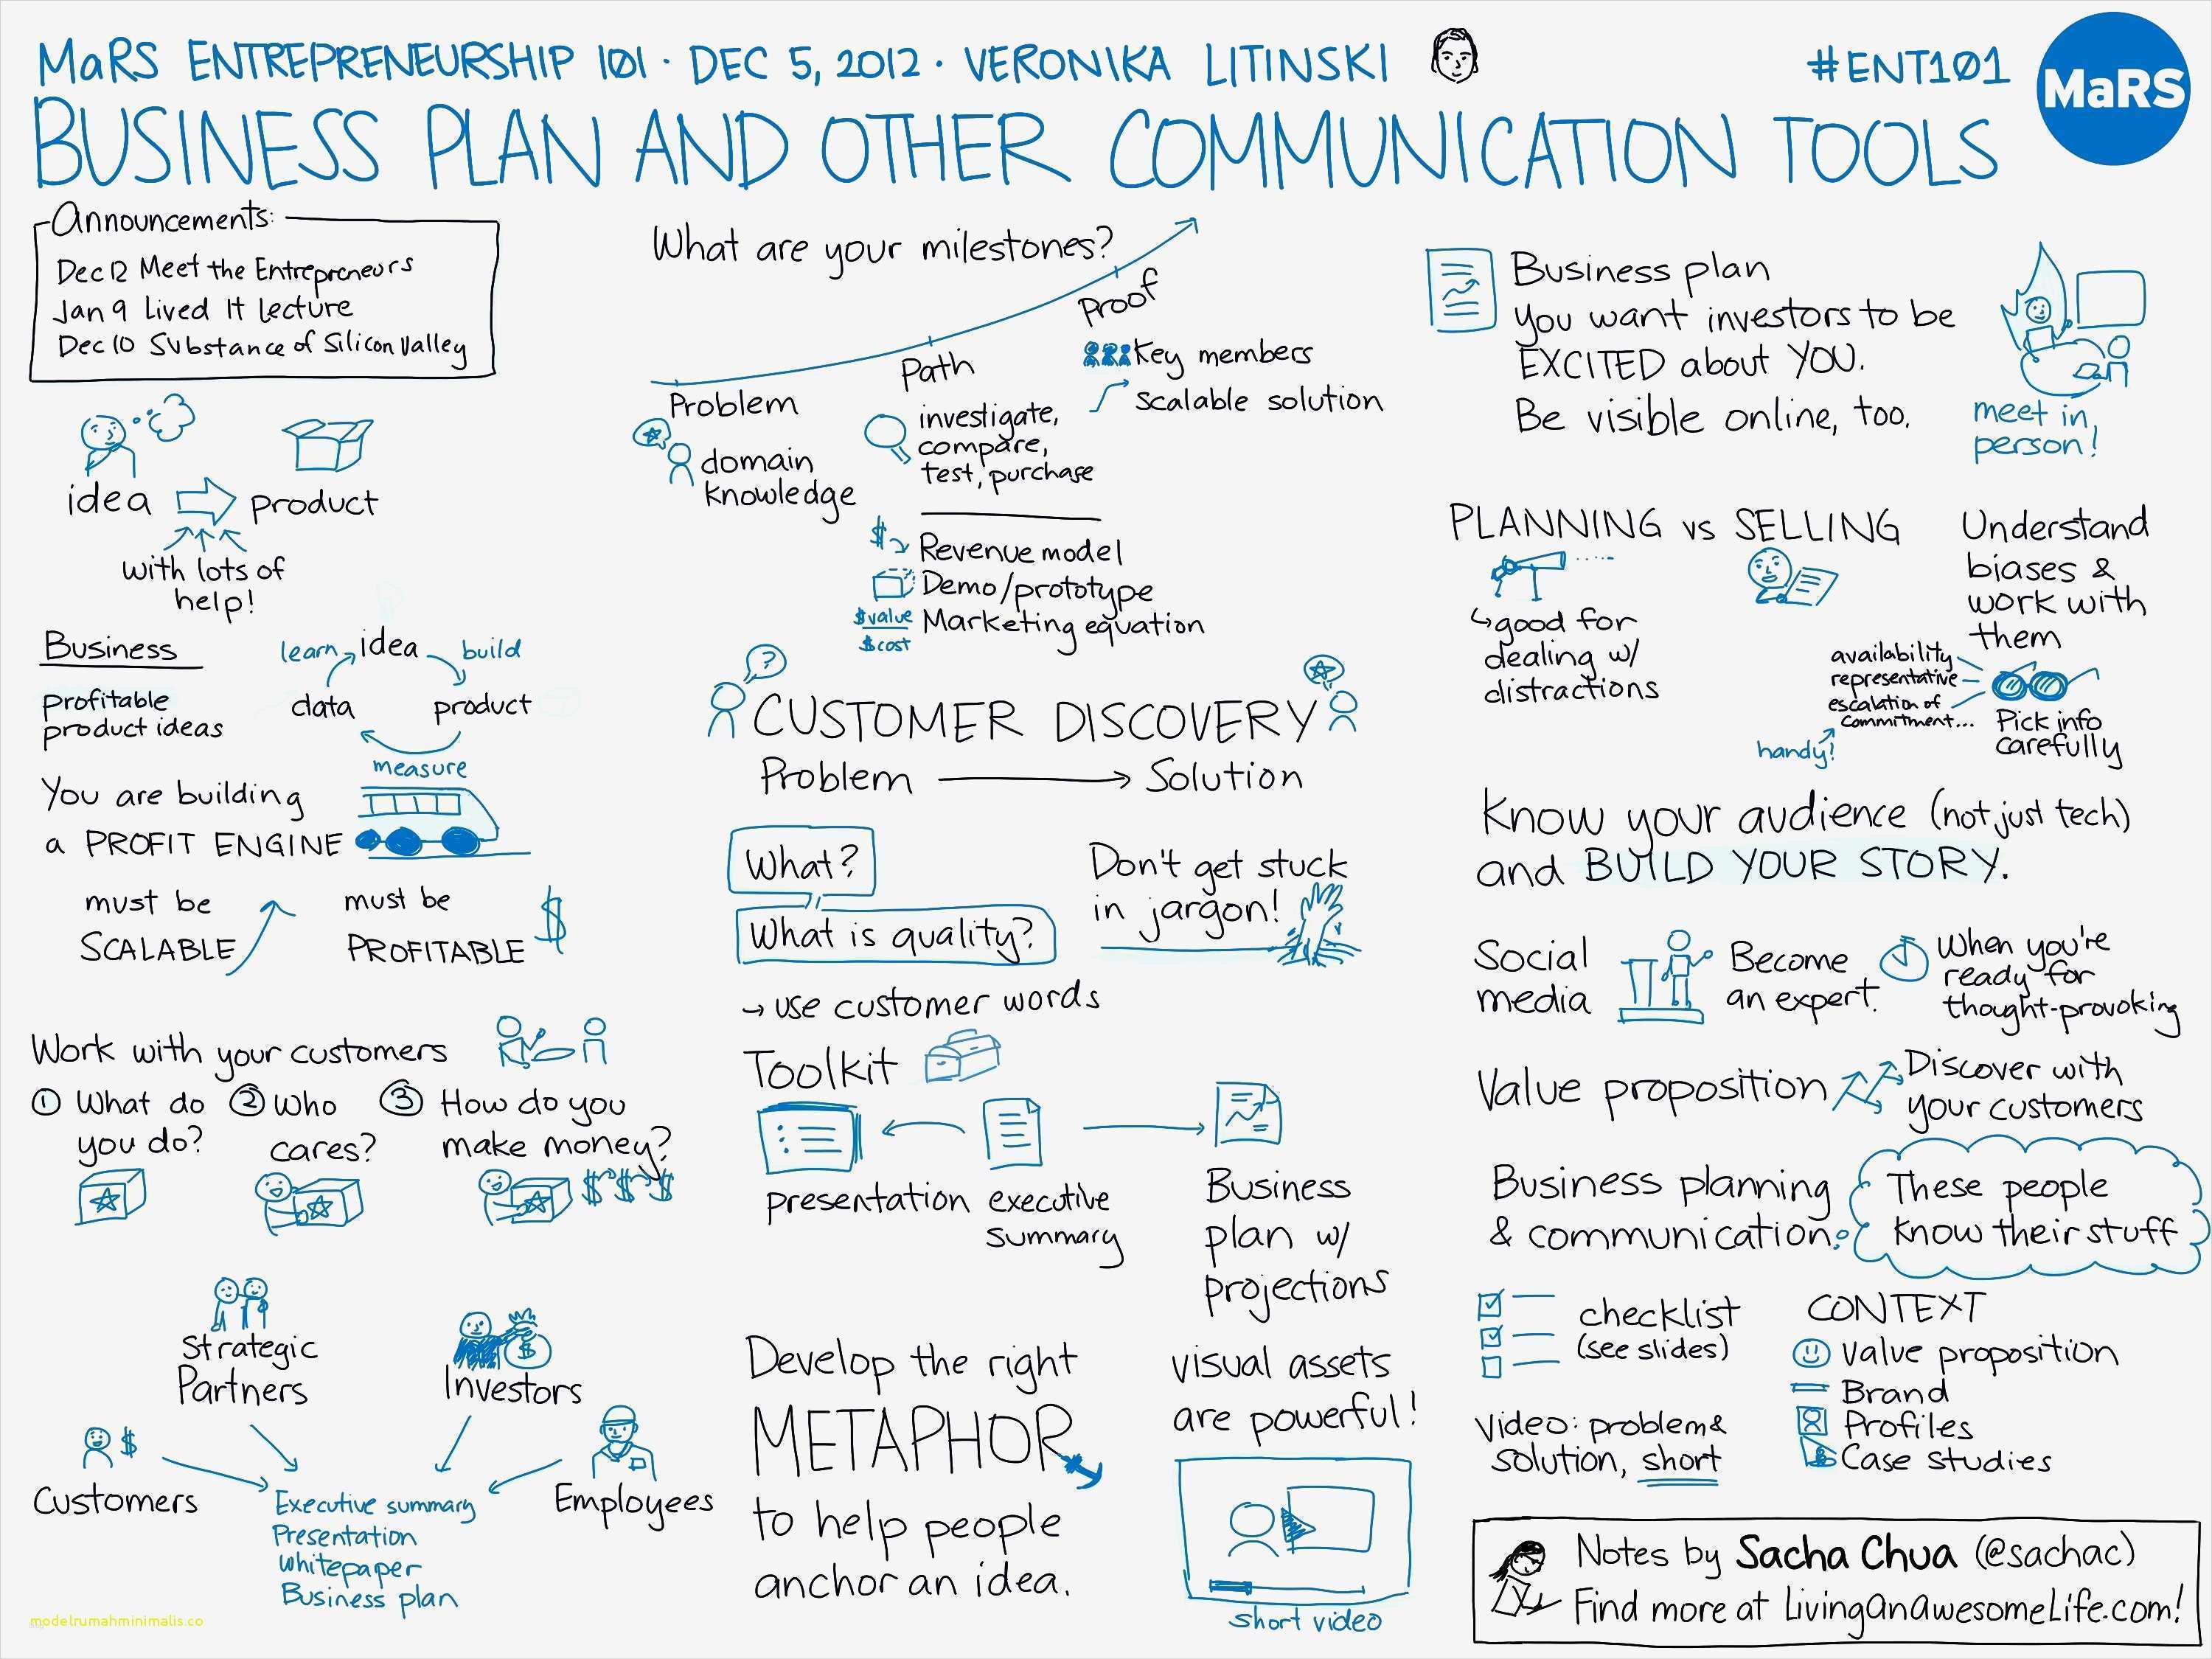 MaRS ENTREPRENEURSHIP 101 · DEC 5, 2012 · VERONIKA LITINSKI
#ENT101
MaRS
BUSINESS PLAN AND OTHER COMMUNICATION TOOLS
Announcements:
Dec 12 Meet the Entrepreneurs
Jan 9 Lived It lecture
Dec 10 Substance of Silicon Valley
idea
product
with lots of
help!
Business
Profitable
product ideas
learn
idea
build
data
product
measure
You are building
a PROFIT ENGINE
must be
SCALABLE
must be
PROFITABLE
$
Work with your customers
① What do
you do?
② Who
cares?
③ How do you
make money?
$ $ $
Strategic
Partners
$
Investors
$
Customers
Employees
Executive summary
Presentation
Whitepaper
Business plan
modelrumahminimalis.co
What are your milestones?
Problem
domain
knowledge
Path
investigate,
compare,
test, purchase
Proof
Key members
scalable solution
$
Revenue model
Demo/prototype
$value
$cost
Marketing equation
?
CUSTOMER DISCOVERY
Problem → Solution
What?
What is quality?
Don't get stuck
in jargon!
→ use customer words
Toolkit
presentation
executive
summary
Business
plan w/
projections
Develop the right
METAPHOR
to help people
anchor an idea.
visual assets
are powerful!
short video
Business plan
you want investors to be
EXCITED about YOU.
Be visible online, too.
meet in
person!
PLANNING vs SELLING
↳ good for
dealing w/
distractions
Understand
biases &
work with
them
availability
representative
escalation of
commitment...
handy!
Pick info
carefully
Know your audience (not just tech)
and BUILD YOUR STORY.
Social
media
Become
an expert.
When you're
ready for
thought-provoking
Value proposition
Discover with
your customers
Business planning
& communication:
These people
know their stuff
checklist
(see slides)
CONTEXT
Value proposition
Brand
Profiles
Case studies
Video: problem &
solution, short
Notes by Sacha Chua (@sachac)
Find more at LivingAnAwesomeLife.com!